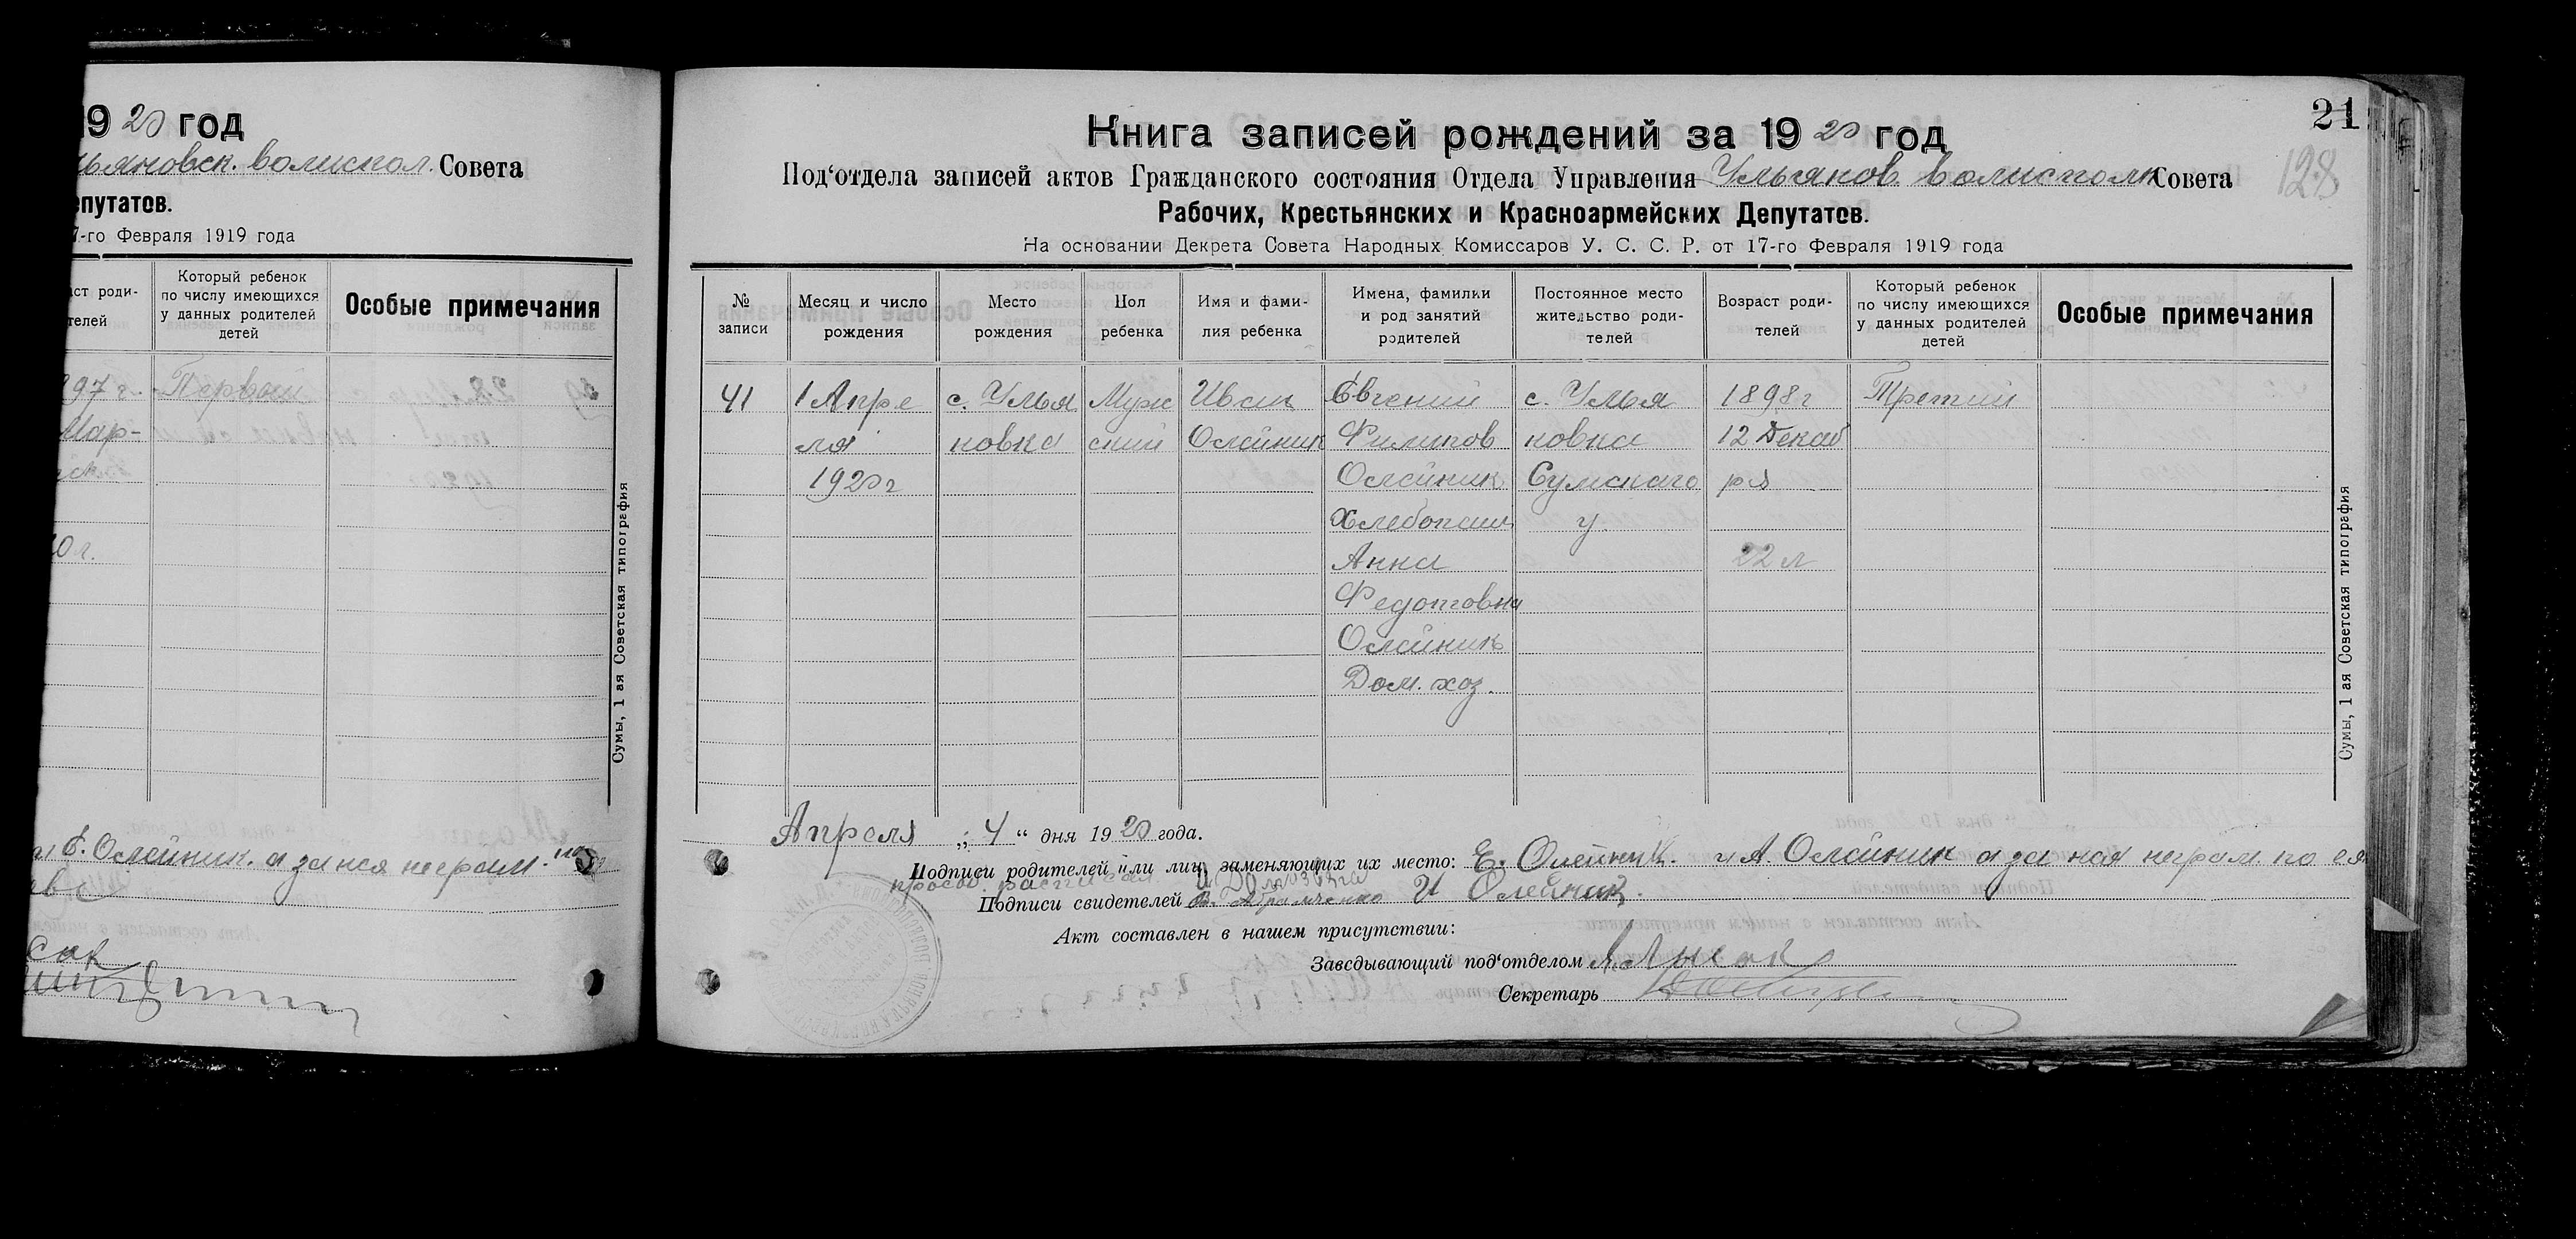 19 20 год
льяновск. волиспол. Совета
епутатов.
7-го Февраля 1919 года
аст роди-
телей
Который ребенок
по числу имеющихся
у данных родителей
детей
Особые примечания
97 г.
Мар-
Первый
0 г.
Сумы, 1 ая Советская типография
и Е. Олейник. а за нея неграм. по
21
128
Книга записей рождений за 19 20 год
Под'отдела записей актов Гражданского состояния Отдела Управления Ульянов. волисполк Совета
Рабочих, Крестьянских и Красноармейских Депутатов.
На основании Декрета Совета Народных Комиссаров У. С. С. Р. от 17-го Февраля 1919 года
№
записи
Месяц и число
рождения
Место
рождения
Пол
ребенка
Имя и фами-
лия ребенка
Имена, фамилии
и род занятий
родителей
Постоянное место
жительство роди-
телей
Возраст роди-
телей
Который ребенок
по числу имеющихся
у данных родителей
детей
Особые примечания
41
1 Апре
ля
1920 г
с. Улья
новка
Муж
ский
Иван
Олейник
Евгений
Филипов
Олейник
Хлебопаш
Анна
Федотовна
Олейник
Дом. хоз.
с. Улья
новка
Сумскаго
у.
1898 г
12 Декаб
ря
22 л
Третий
Сумы, 1 ая Советская типография
Апреля „ 4 “ дня 19 20 года.
Подписи родителей или лиц, заменяющих их место: Е. Олейник. и А. Олейник а за ная неграм. по ея
просьб. расписал
Подписи свидетелей В. Абрамченко И Олейник.
Акт составлен в нашем присутствии:
Заведывающий под'отделом Лысак
Секретарь